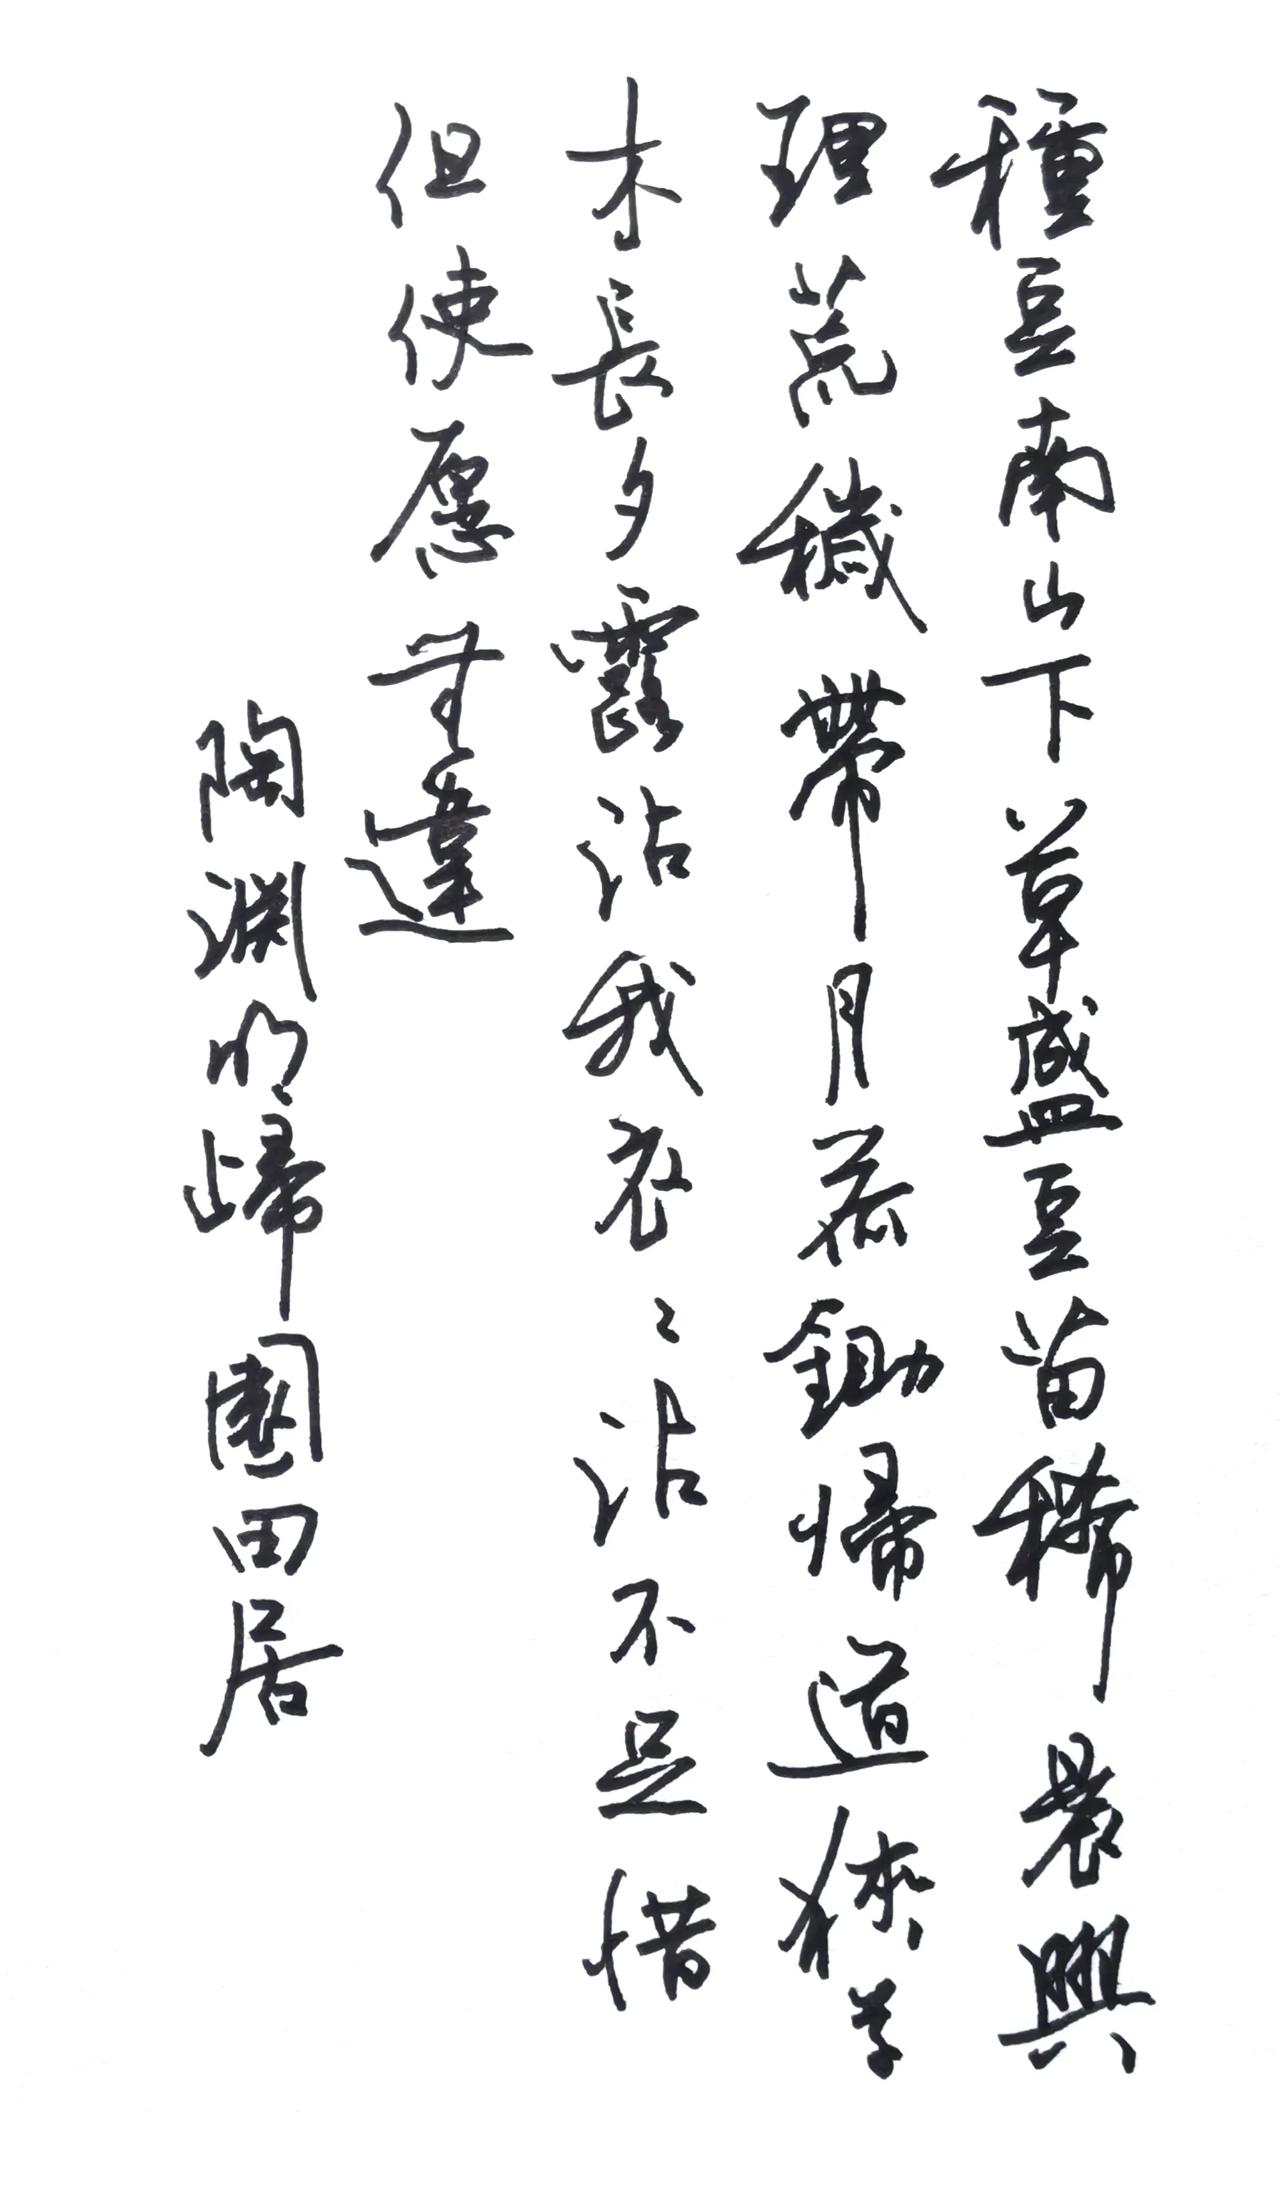 種豆南山下草盛豆苗稀晨興
理荒穢帶月荷鋤歸道狹草
木長夕露沾我衣〻沾不足惜
但使愿無違
陶淵明歸園田居